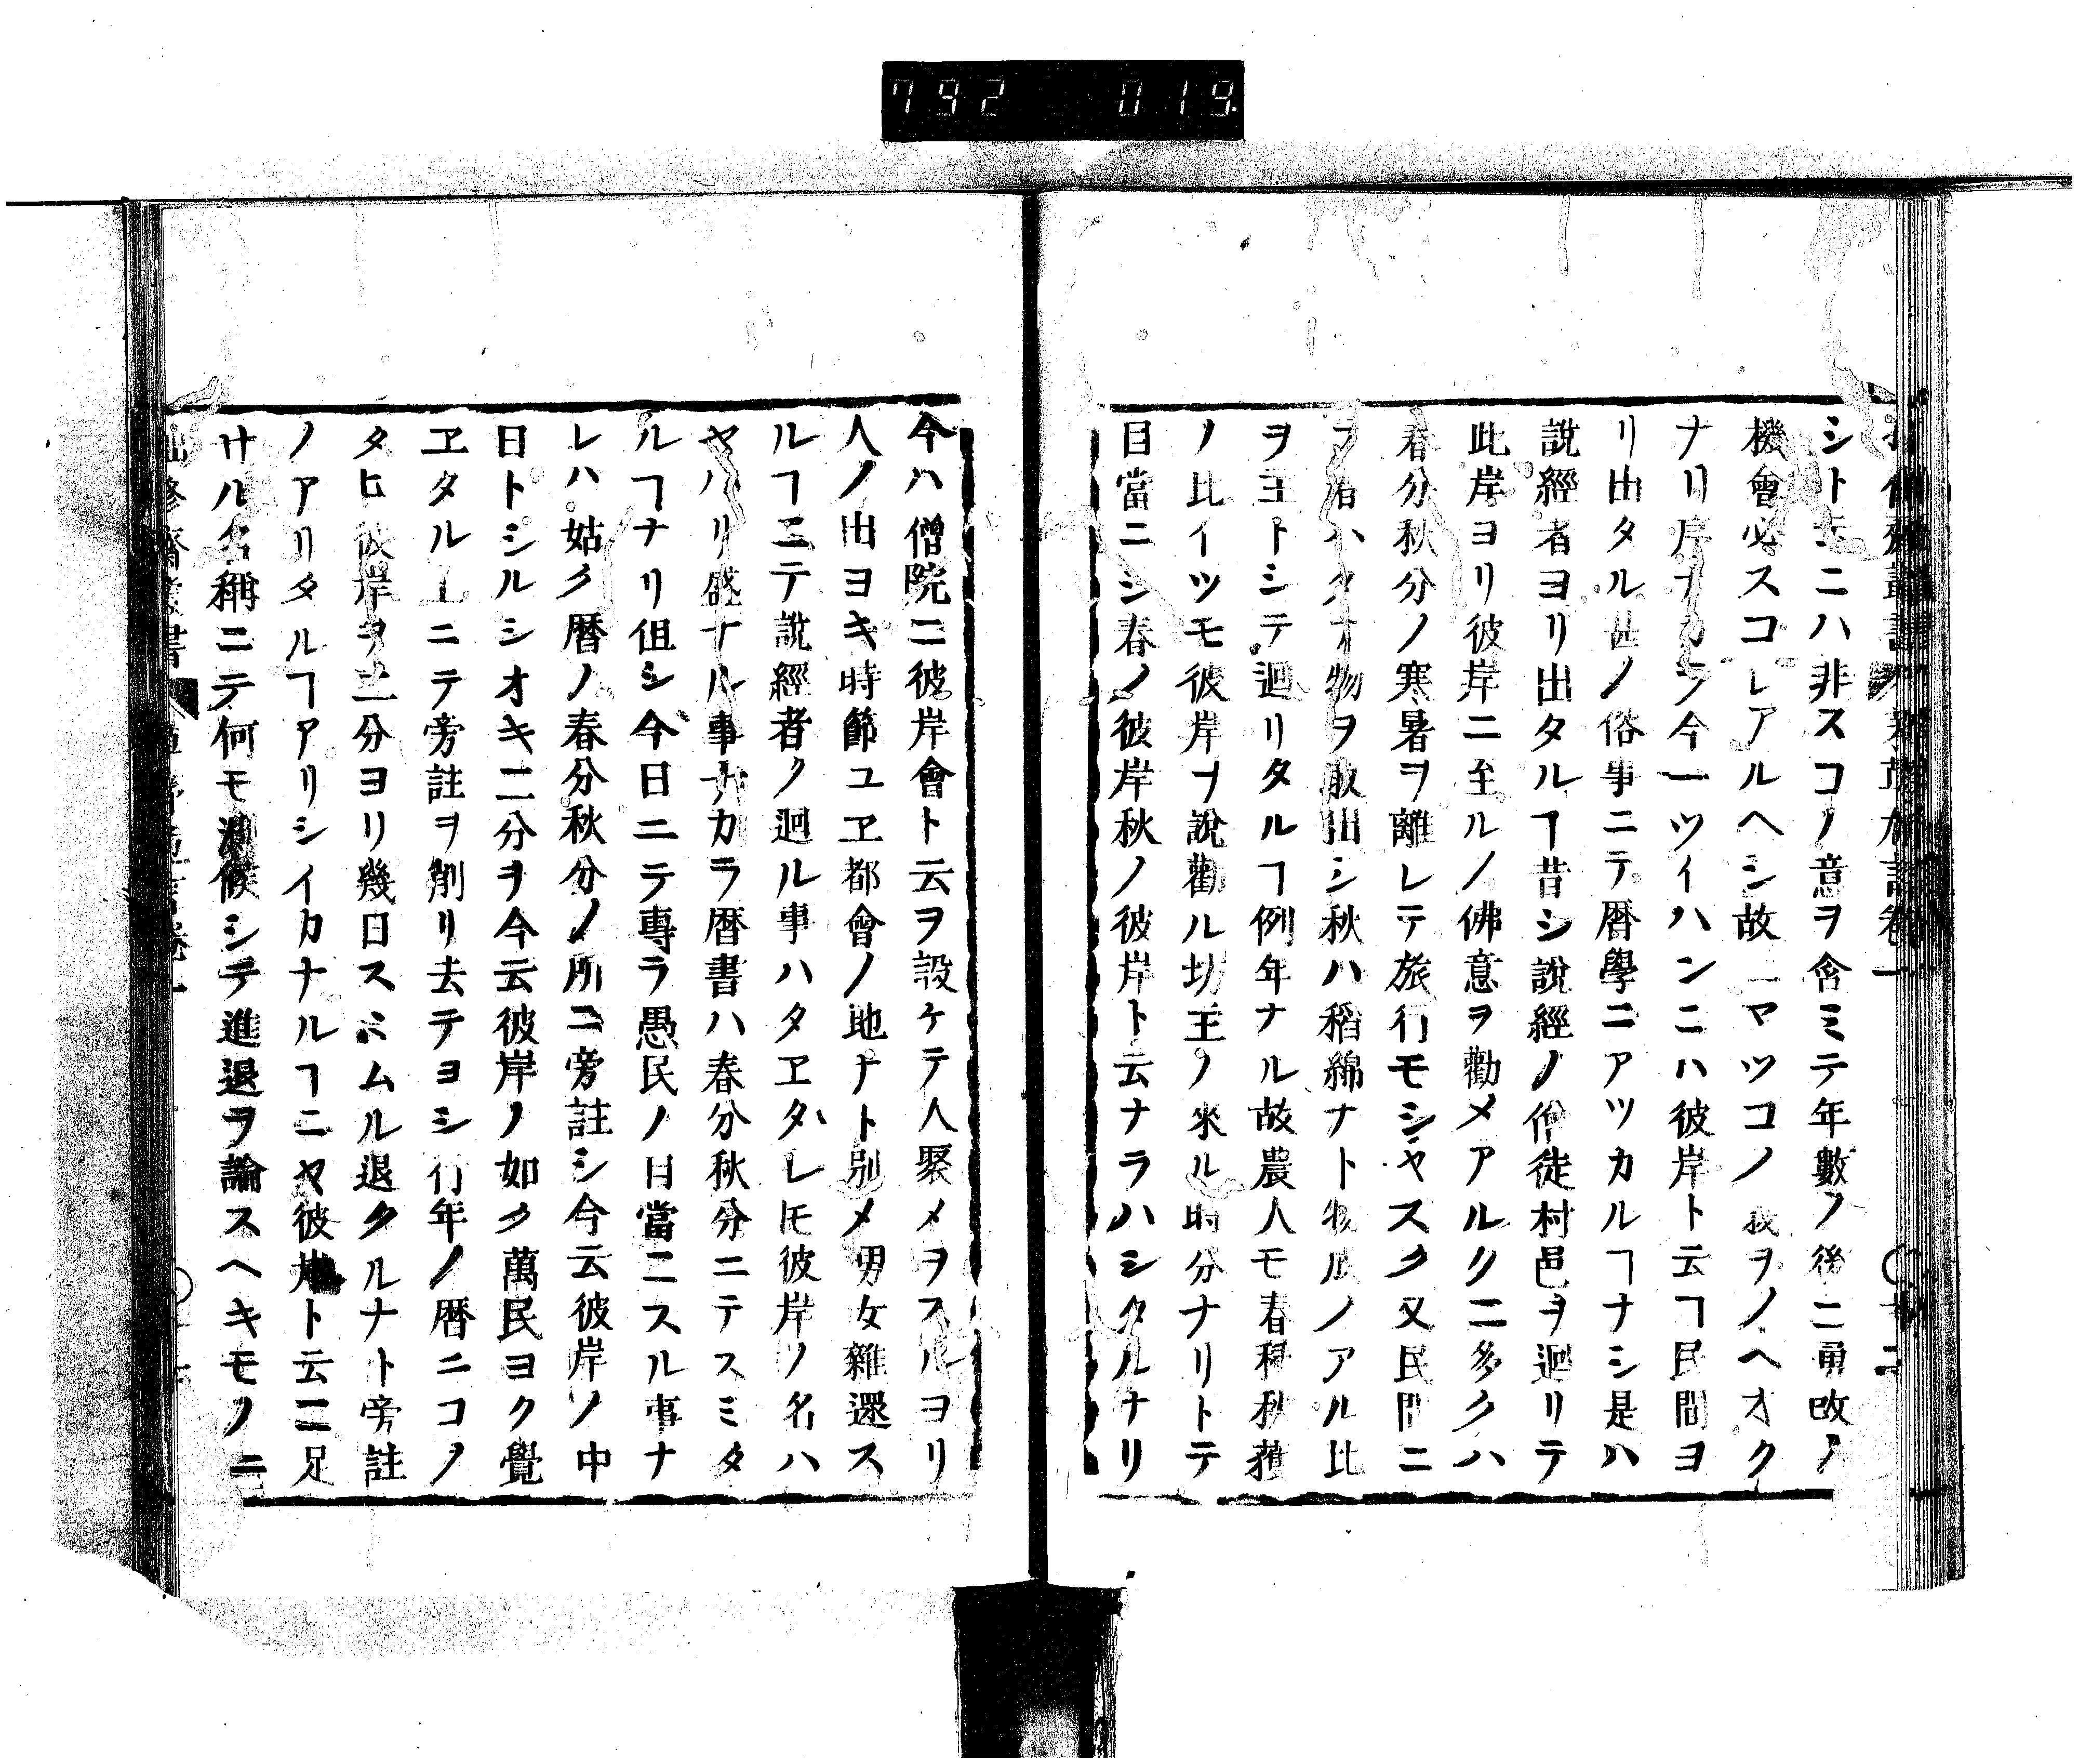 792 019
シト云ニハ非スコノ意ヲ含ミテ年數ノ後ニ再改ノ
機會必スコレアルヘシ故ニマツコノ我ヲノヘオク
ナリ岸ナカラ今一ツイハンニハ彼岸ト云ヿ民間ヨ
リ出タル甚ノ俗事ニテ暦學ニアツカルヿナシ是ハ
説經者ヨリ出タルヿ昔シ説經ノ僧徒村邑ヲ迴リテ
此岸ヨリ彼岸ニ至ルノ佛意ヲ勸メアルクニ多クハ
春分秋分ノ寒暑ヲ離レテ旅行モシヤスク又民間ニ
ヲ ハタオ物ヲ取出シ秋ハ稻綿ナト物 ノアル比
ヲヨトシテ迴リタルヿ例年ナル故農人モ春種秋穫
ノ比イツモ彼岸ヲ説勸ル坊主ノ來ル時分ナリトテ
目當ニシ春ノ彼岸秋ノ彼岸ト云ナラハシタルナリ
今ハ僧院ニ彼岸會ト云ヲ設ケテ人聚メヲスルヨリ
人ノ出ヨキ時節ユヱ都會ノ地ナト別メ男女雜還ス
ルヿニテ説經者ノ迴ル事ハタヱタレ𪜈彼岸ノ名ハ
ヤハリ盛ナル事ナカラ暦書ハ春分秋分ニテスミタ
ルヿナリ但シ今日ニテ專ラ愚民ノ日當ニスル事ナ
レハ姑ク暦ノ春分秋分ノ所ニ旁註シ今云彼岸ノ中
日トシルシオキ二分ヲ今云彼岸ノ如ク萬民ヨク覺
ヱタル上ニテ旁註ヲ削リ去テヨシ行年ノ暦ニコノ
タヒ彼岸ヲ二分ヨリ幾日スヽムル退クルナト旁註
ノアリタルヿアリシイカナルヿニヤ彼岸ト云ニ足
サル名稱ニテ何モ測候シテ進退ヲ論スヘキモノニ